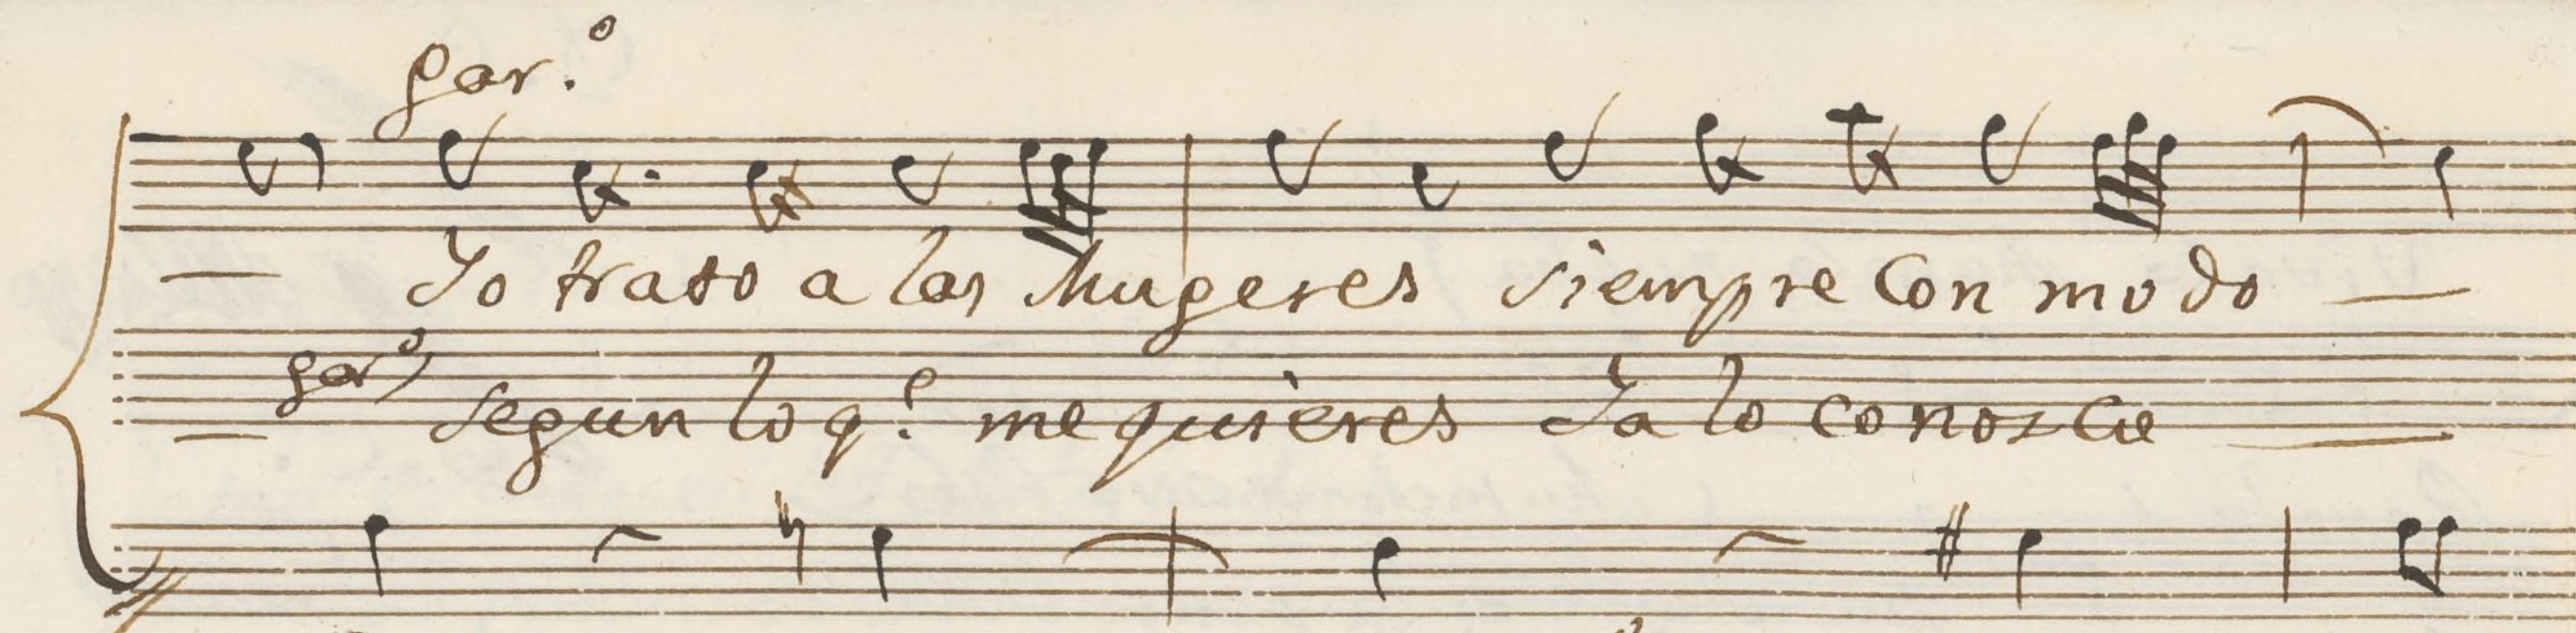 Gar.º
Yo trato a las Mugeres siempre Con modo
Gar.º
segun lo q.e me quieres Ya lo conozco